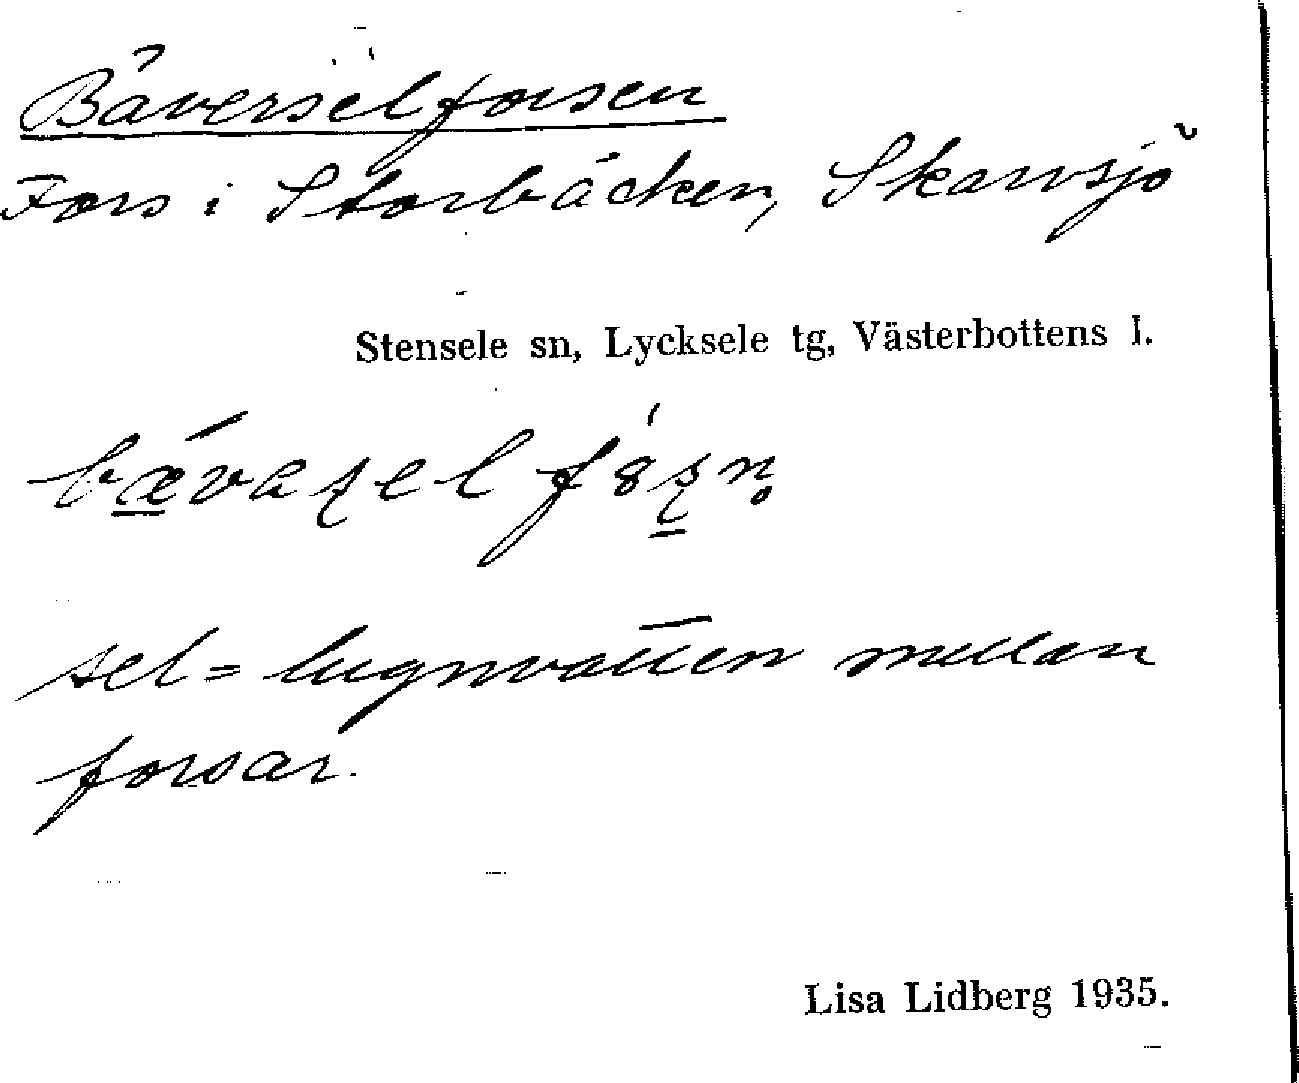 Bäverselforsen
Fors i Storbäcken, Skarvsjö
Stensele sn, Lycksele tg, Västerbottens l.
sel = lugnvatten mellan
forsar.
Lisa Lidberg 1935.